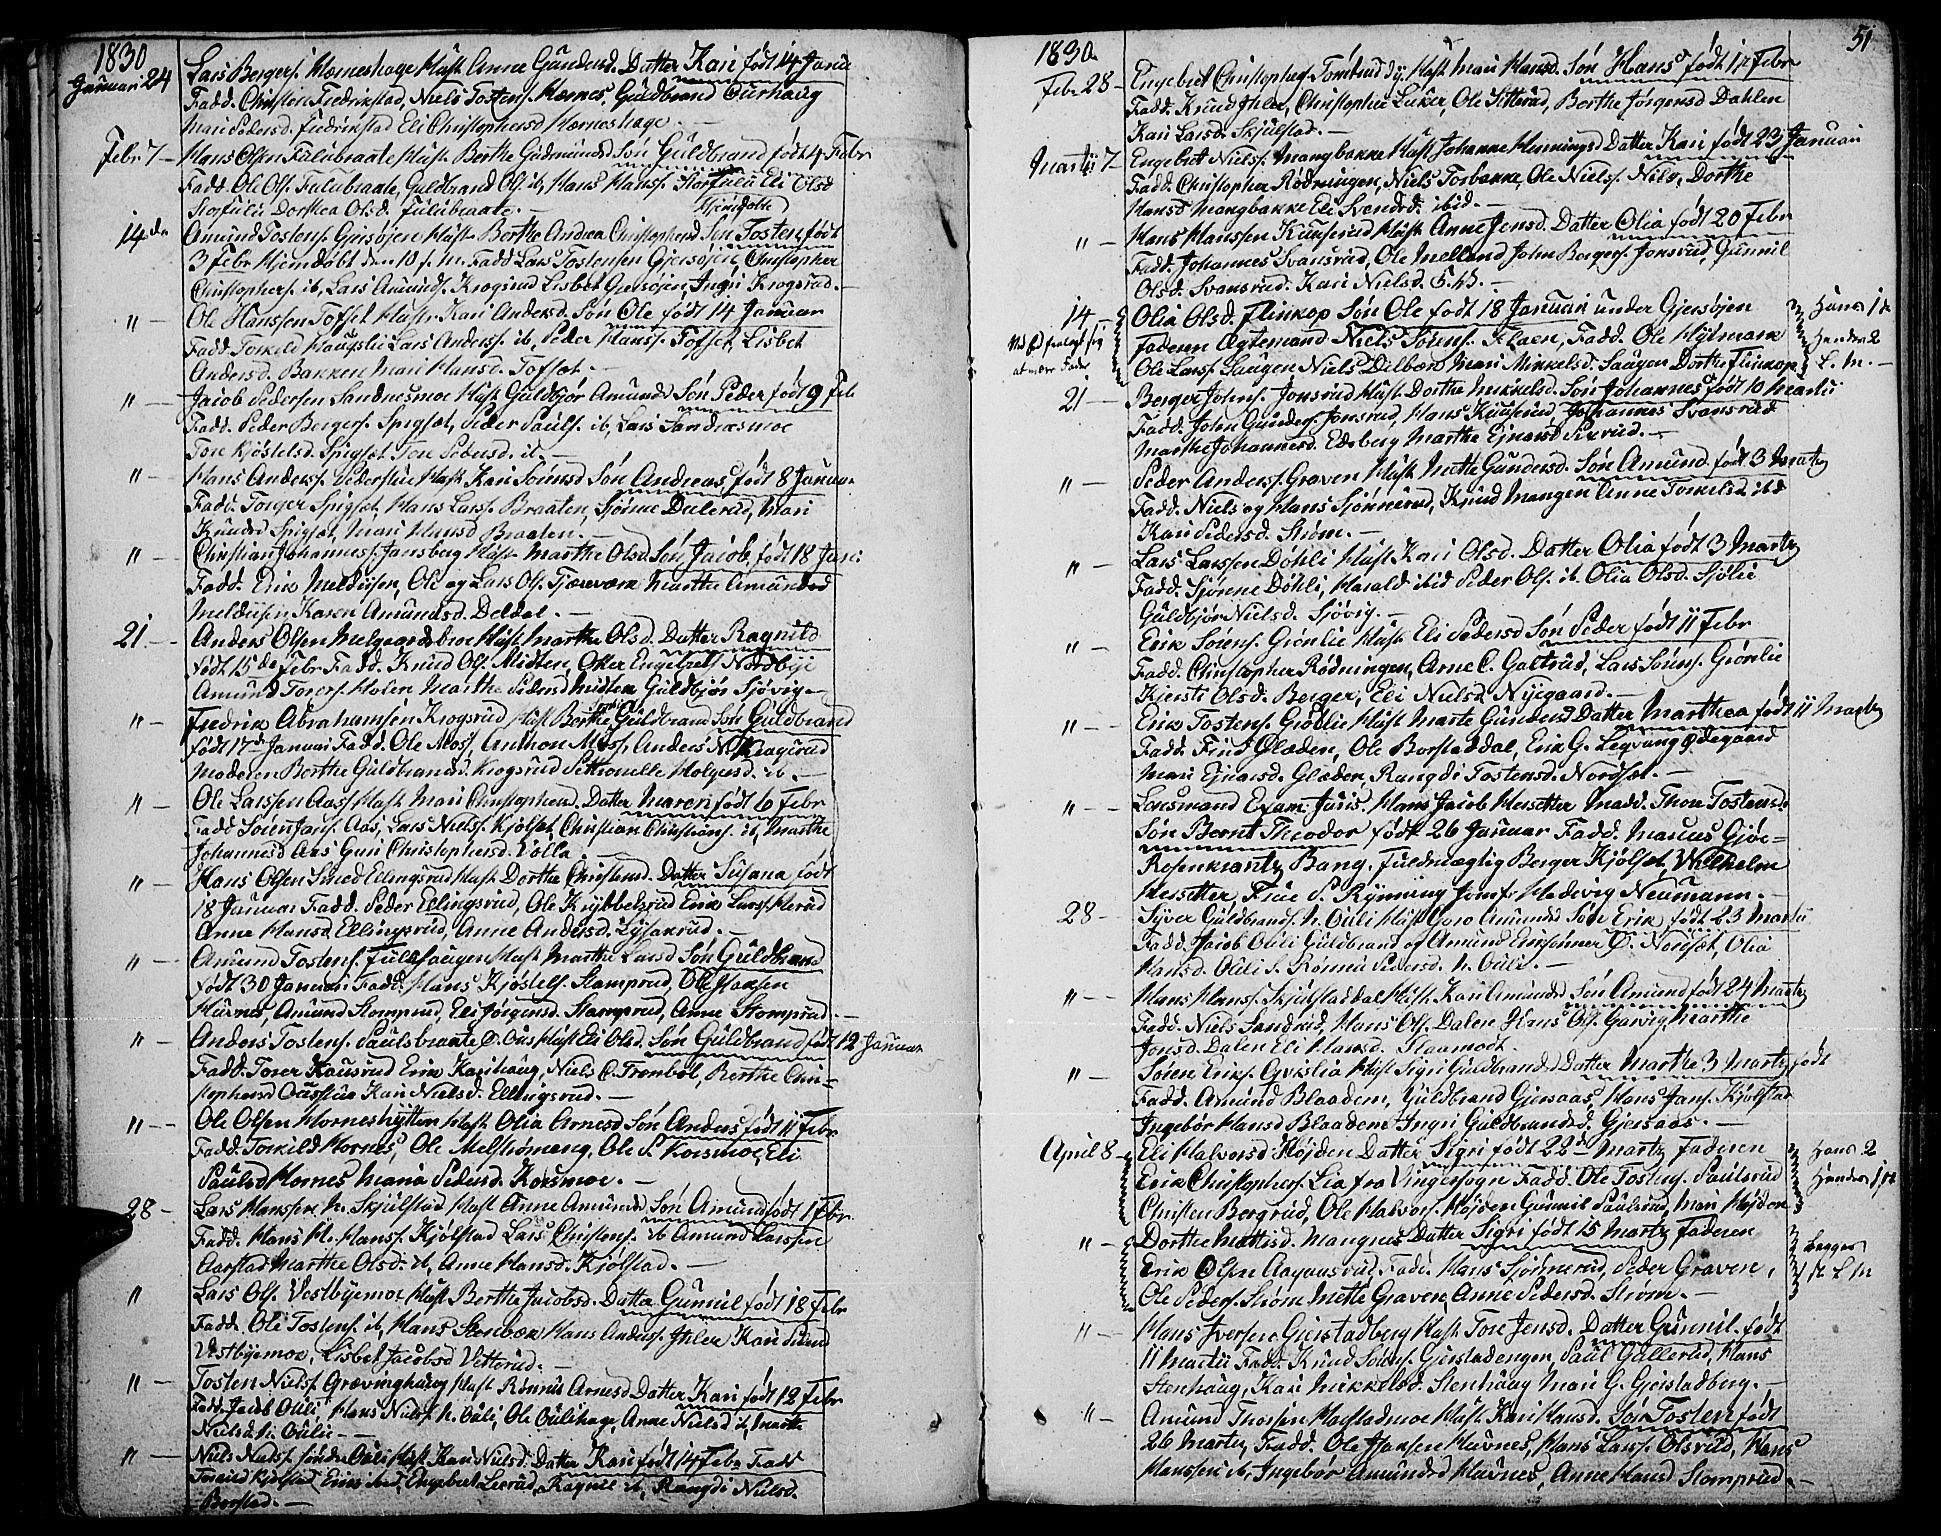 1830
Januari 24 Lars Bergers. Hørneshage Hust. Anne Gundersd. Datter Kari født 14 Janu
Fadd. Christen Fredrikstad, Niels Tostens. Hørnes, Guldbrand Ourhaug
Mari Pedersd. Fredrikstad Eli Christophersd Hørneshage. —
Febr 7 — Hans Olsen Fulubraate Hust. Berthe Gudmunds Søn Guldbrand født 4 Febr
Fadd. Ole Ols. Fulubraate, Guldbrand Ols. ib, Hans Hans. Storfulu Eli Olsd
Storfulu Dorthea Olsd. Fulubraate. — Hjemdøbt
14 de Amund Tostens. Gjersøjen Hust. Berthe Andrea Christophersd Søn Tosten født
3 Febr Hjemdøbt den 10 f. M. Fadd Lars Tostensen Gjersøjen, Christopher
Christophers. ib, Lars Amunds. Krogsrud Lisbet Gjersøjen Ingri Krogsrud. —
" — Ole Hanssen Tofset Hust. Kari Andersd. Søn Ole født 14 Januar
Fadd. Torkild Haugslie Lars Anderss. ib, Peder Hanss. Tofset, Lisbet
Andersd. Bakken Mari Hansd. Tofset. —
" — Jacob Pedersen Sandnesmoe Hust. Guldbjør Amunds Søn Peder født 9 Feb
Fadd. Peder Bergers. Spigset, Peder Pauls. ib, Lars Sandnesmoe
Tore Kjøstelsd. Spigset Tore Pedersd. ib. —
" — Hans Anderss. Pederstue Hust. Kari Sørensd Søn Andreas født 8 Januar
Fadd. Torger Spigset, Hans Lars. Braaten, Sjønne Dulerud, Mari
Knudsd Spigset, Mari Hansd Braaten. —
" — Christian Johannes. Jansberg Hust. Marthe Olsd Søn Jacob født 18 Janu.
Fadd. Erik Meldiesen, Ole og Lars Ols. Tjernværn Marthe Amundsd
Meldiesen Karen Amundsd. Deldal. —
21 — Anders Olsen Melgaardsmoe Hust. Marthe Olsd. Datter Ragnild
født 15 de Febr Fadd. Knud Ols. Midtun, Otter Engebrets Nordbye
Amund Torers. Holen Marthe Pedersd Midtun Guldbjør Sjøvig —
" — Fredrik Abrahamsen Krogsrud Hust. Berthe Guldbrand Søn Guldbrand
født 17 d Januari Fadd. Ole Moss, Anthon Moss, Anders N. Kragsrud
Moderen Berthe Guldbrandsd. Krogsrud Petronelle Holgersd. ib. —
" — Ole Larssen Aass Hust. Mari Christophersd. Datter Maren født 6 Febr
Fadd Søren Jans. Aas, Lars Niels. Kjølset, Christian Christians. ib, Marthe
Johannesd Aas Guri Christophersd. Volla
" — Hans Olsen Smed Ellingsrud Hust. Dorthe Christensd. Datter Susana født
18 Januar Fadd. Peder Ellingsrud, Ole Krybbelsrud Erik Lars. Herud
Anne Hansd. Ellingsrud, Anne Andersd. Lysakrud. —
" — Amund Tostens. Fulusaugen Hust. Marthe Larsd Søn Guldbrand
født 30 Januari Fadd. Hans Kjøstels. Stomprud, Ole Hansen
Huvnes, Amund Stomprud, Eli Jørgensd. Stomprud, Anne Stomprud. —
" — Anders Tostens. Paulsbraate Ø. Ous Hust. Eli Olsd. Søn Guldbrand født 12 Januar
Fadd. Torer Kausrud Erik Karihaug, Niels C. Trombøl, Berthe Chri=
stophersd Ousstue Kari Nielsd. Ellingsrud. —
" — Ole Olsen Horneshytten Hust. Olia Arnesd Søn Anders født 11 Febr
Fadd. Torkild Hornes, Ole Melstrømeng, Ole S. Korsmoe, Eli
Paulsd Hornes Maria Pedersd. Korsmoe. —
28 — Lars Hanssen N. Skjulstad Hust. Anne Amundsd Søn Amund født 1 Febr
Fadd. Hans H. Hanss. Kjølstad Lars Christens. ib Amund Larssen
Aarstad Marthe Olsd. ib, Anne Hansd. Kjølstad. —
" Lars Ols. Vestbyemoe Hust. Berthe Jacobsd. Datter Gunnil født 18 Febr
Fadd. Ole Tostens. ib, Hans Stenbæk Hans Anders. Ihlen Kari Pedersd
Vestbyemoe, Lisbet Jacobsd Vitterud. —
" — Tosten Niels. Grævinghaug Hust. Rønnu Arnesd Datter Kari født 12 Febr
Fadd. Jacob Ouli, Hans Niels. N. Ouli, Ole Oulihage, Anne Nielsd ib, Marthe
Nielsd N. Oulie —
" — Niels Niels. søndre Ouli Hust. Kari Nielsd. Datter Kari født 14 Febr Fadd
Torkild Kjølstad Erik ibid, Engebret Lierud, Ragnil ib, Rangdi Nielsd.
Borstad. —
51
1830
Febr 28 — Engebret Christophers. Tombrud Øy. Hust. Mari Hansd. Søn Hans født 1 Febr
Fadd. Knud Ihlen, Christopher Luker, Ole Sitterud, Berthe Jørgensd Dahlen
Kari Larsd. Skjulstad. —
Martii 7 — Engebret Niels. Mangbakke Hust. Johanne Hennings Datter Kari født 23 Januari
Fadd. Christopher Rødningen, Niels Torbakke, Ole Niels. Nilv, Dorthe
Hansd Mangbakke Eli Svendsd. ibid. —
" — Hans Hanssen Kuuserud Hust. Anne Jensd. Datter Olia født 20 Febr
Fadd. Johannes Svansrud, Ole Melland John Bergers. Jonsrud, Gunnil
Olsd. Svansrud. Kari Nielsd. S.K. —
14 — Olia Olsd. Flinkop Søn Ole født 18 Januari under Gjersøjen Hans 1te
Faderen Ægtemand Niels Sørens. Flaen, Fadd. Ole Hytmark Hendes 2
Ole Lars. Saugen Niels Dilbæk Mari Mikkelsd. Saugen Dorthe Flinkop L. M. —
21 — Berger Johns. Jonsrud Hust. Dorthe Mikkelsd. Søn Johannes født 10 Martii
Fadd. John Gunders. Jonsrud, Hans Kuuserud, Johannes Svansrud
Marthe Johannesd. Edsberg Marthe Ejnarsd Sverud. —
" — Peder Anders. Graven Hust. Mette Gundersd. Søn Amund født 3 Martz
Fadd. Niels og Hans Sjønnerud, Knud Mangen Anne Torkelsd ibid
Kari Pedersd. Strøm. —
" — Lars Larssen Døhli Hust. Kari Olsd. Datter Olia født 3 Martz
Fadd. Sjønne Døhli, Harald ibid Peder Ols. ib. Olia Olsd. Sjølie
Guldbjør Nielsd. Sjøvig. —
" — Erik Sørens. Grønlie Hust. Eli Pedersd Søn Peder født 11 Febr
Fadd. Christopher Rødningen, Arne C. Galtrud, Lars Sørens. Grønlie
Kjersti Olsd. Berger, Eli Nielsd. Nyegaard. —
" — Erik Tostens. Grønlie Hust. Marte Gundersd Datter Marthea født 11 Martz
Fadd. Find Gladen, Ole Borstaddal, Erik G. Legvang Ødegaard
Mari Ejnarsd. Gladen, Rangdi Tostensd. Nordset. —
" — Lensmand Exam. Juris. Hans Jacob Hesselter Madd. Thore Tostensd.
Søn Bernt Theodor født 26 Januar Fadd. Marcus Gjøe=
Rosenkrantz Bang. Fuldmægtig Berger Kjølset, Wilhelm
Hesselter, Frue S. Rynning Jomfr. Hedevig Neumann. —
28 — Syver Guldbrands. N. Ouli Hust. Goro Amundsd Søn Erik født 23 Martii
Fadd. Jacob Ouli Guldbrand og Amund Eriksønner Ø. Nordset, Olia
Hansd. Ouli S. Rønnu Pedersd. N. Ouli. —
" — Hans Hans. Skjulstaddal Hust. Kari Amundsd Søn Amund født 24 Martz
Fadd. Niels Sandrud, Hans Ols. Dalen Hans Ols. Garvig Marthe
Jonsd. Dalen Eli Hansd. Slaamodt.
" — Søren Eriks. Gvislia Hust. Sigri Guldbrandsd Datter Marthe 3 Martz født
Fadd. Amund Blaadem, Guldbrand Gjersaas, Hans Jans. Kjølstad
Ingebør Hansd Blaadem Ingri Guldbrandsd. Gjersaas. —
April 8 — Eli Halvorsd Højden Datter Sigri født 22 d Martz Faderen Hans 2
Erik Christophers. Lia fra Vingersogn Fadd. Ole Tostens. Paulsrud Hendes 1te
Christen Bergrud, Ole Halvors. Højden Gunnil Paulsrud, Mari Højden
" — Dorthe Mattisd. Mangnes Datter Sigri født 15 Martz Faderen Begges
Erik Olsen Aagaasrud, Fadd. Hans Sjønnerud, Peder Graven, 1te L. M
Ole Peders. Strøm Mette Graven, Anne Pedersd. Strøm. —
" — Hans Iversen Gjerstadberg Hust. Tore Jensd. Datter Gunnil født
11 Martii Fadd. Knud Sørens. Gjerstadengen, Paul Gullerud, Hans
Stenhaug, Kari Mikkelsd. Stenhaug Mari G. Gjerstadberg. —
" — Amund Thorsen Harstadmoe Hust. Kari Hansd. Søn Tosten født
26 Martz, Fadd. Ole Hansen Huvnes, Hans Lars. Olsrud, Hans
Hanssen ib, Ingebør Amundsd Huvnes, Anne Hansd Stomprud. —